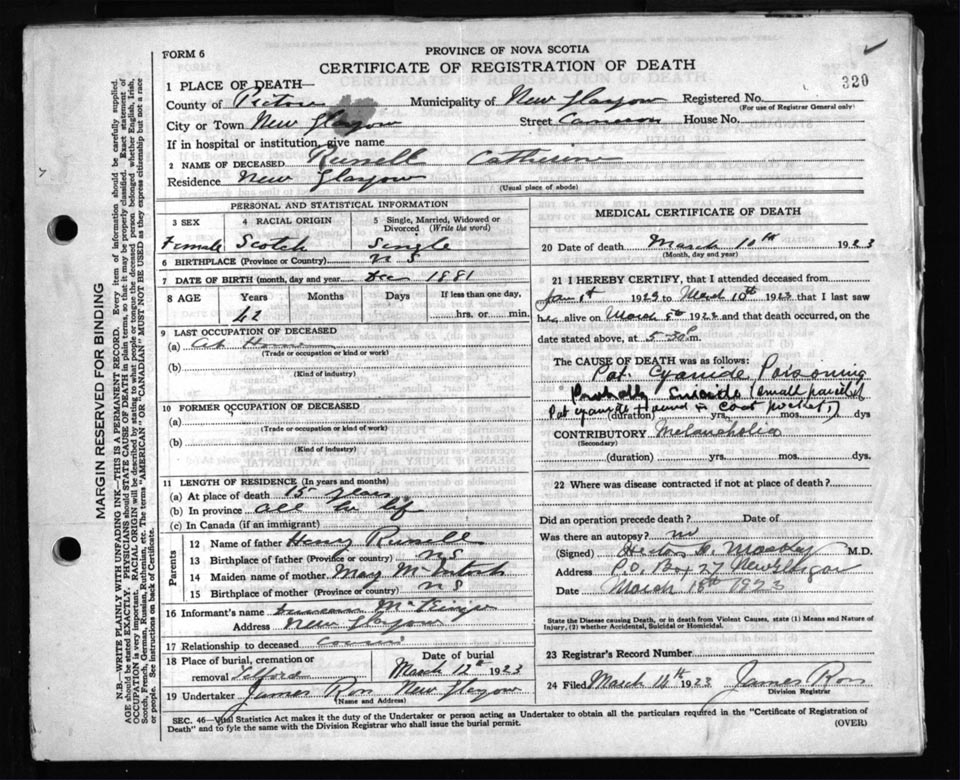 PROVINCE OF NOVA SCOTIA
FORM 6
CERTIFICATE OF REGISTRATION OF DEATH
320
1 PLACE OF DEATH—
County of Pictou Municipality of New Glasgow Registered No.
(For use of Registrar General only)
City or Town New Glasgow Street Cameron House No.
If in hospital or institution, give name
2 NAME OF DECEASED Russell Catherine
Residence New Glasgow
(Usual place of abode)
PERSONAL AND STATISTICAL INFORMATION
3 SEX 4 RACIAL ORIGIN 5 Single, Married, Widowed or Divorced (Write the word)
Female Scotch Single
6 BIRTHPLACE (Province or Country) N S
7 DATE OF BIRTH (month, day and year) Dec 1881
8 AGE Years Months Days If less than one day,
42 hrs. or min.
9 LAST OCCUPATION OF DECEASED
(a) At Home
(Trade or occupation or kind or work)
(b)
(Kind of industry)
10 FORMER OCCUPATION OF DECEASED
(a)
(Trade or occupation or kind of work)
(b)
(Kind of industry)
11 LENGTH OF RESIDENCE (In years and months)
(a) At place of death 15 years
(b) In province all her life
(c) In Canada (if an immigrant)
Parents
12 Name of father Henry Russell
13 Birthplace of father (Province or country) N S
14 Maiden name of mother Mary McIntosh
15 Birthplace of mother (Province or country) N S
16 Informant's name
Address New Glasgow
17 Relationship to deceased cousin
18 Place of burial, cremation or removal Telford Date of burial March 12th 1923
19 Undertaker James Ross New Glasgow
(Name and Address)
MEDICAL CERTIFICATE OF DEATH
20 Date of death March 10th 1923
(Month, day and year)
21 I HEREBY CERTIFY, that I attended deceased from
Jan 1st 1923 to March 10th 1923 that I last saw
her alive on March 1923 and that death occurred, on
date stated above, at 5.30 m.
The CAUSE OF DEATH was as follows:
Pot. Cyanide Poisoning
Probably suicide (small parcel of
Pot cyanide found in coat pocket.)
(duration) yrs. mos. dys
CONTRIBUTORY Melancholia
(Secondary)
(duration) yrs. mos. dys.
22 Where was disease contracted if not at place of death?
Did an operation precede death? Date of
Was there an autopsy? no
(Signed) M.D.
Address P.O. Box 27 New Glasgow
Date March 18th 1923
State the Disease causing Death, or in death from Violent Causes, state (1) Means and Nature of
Injury, (2) whether Accidental, Suicidal or Homicidal.
23 Registrar's Record Number
24 Filed March 14th 1923 James Ross
Division Registrar
SEC. 46—Vital Statistics Act makes it the duty of the Undertaker or person acting as Undertaker to obtain all the particulars required in the "Certificate of Registration of
Death" and to fyle the same with the Division Registrar who shall issue the burial permit.
(OVER)
MARGIN RESERVED FOR BINDING
N.B.—WRITE PLAINLY WITH UNFADING INK—THIS IS A PERMANENT RECORD. Every item of information should be carefully supplied.
AGE should be stated EXACTLY. PHYSICIANS should STATE CAUSE OF DEATH in plain terms, so that it may be properly classified. Exact statement of
OCCUPATION is very important. RACIAL ORIGIN will be described by stating to what people or tongue the deceased person belonged whether English, Irish,
Scotch, French, German, Russian, Ruthenian, etc. The terms "AMERICAN" or "CANADIAN" MUST NOT BE USED as they express citizenship but not a race
or people. See instructions on back of Certificate.